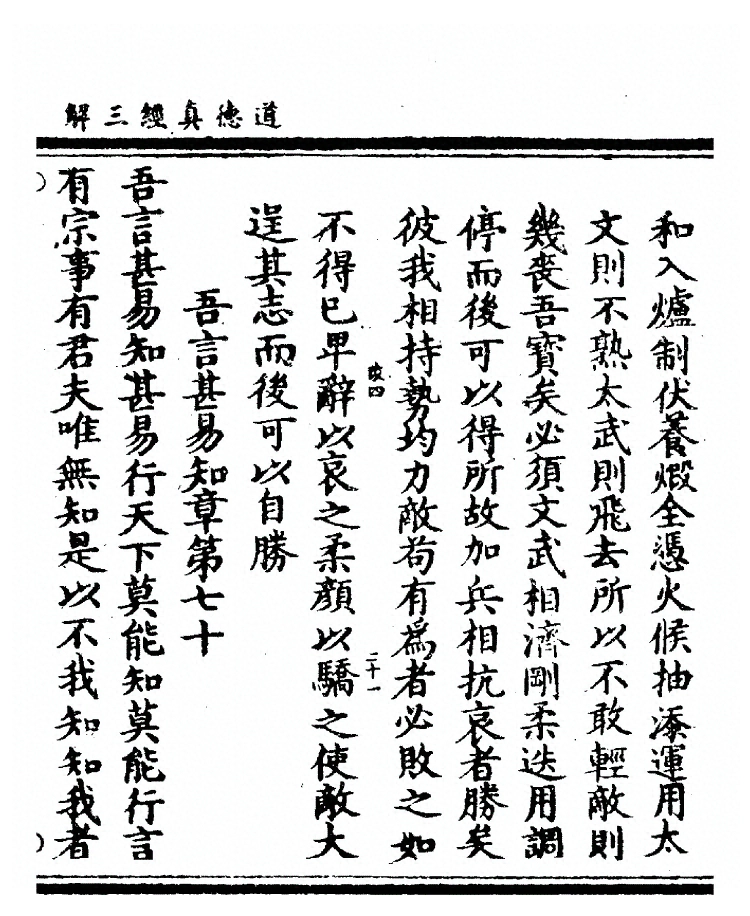 道德真經三解
和入爐制伏養煅全憑火候抽添運用太
文則不熟太武則飛去所以不敢輕敵則
幾喪吾寶矣必須文武相濟剛柔迭用調
停而後可以得所故加兵相抗哀者勝矣
彼我相持勢均力敵苟有爲者必敗之如
改四
二十一
不得已卑辭以哀之柔顔以驕之使敵大
逞其志而後可以自勝
吾言甚易知章第七十
吾言甚易知甚易行天下莫能知莫能行言
有宗事有君夫唯無知是以不我知知我者